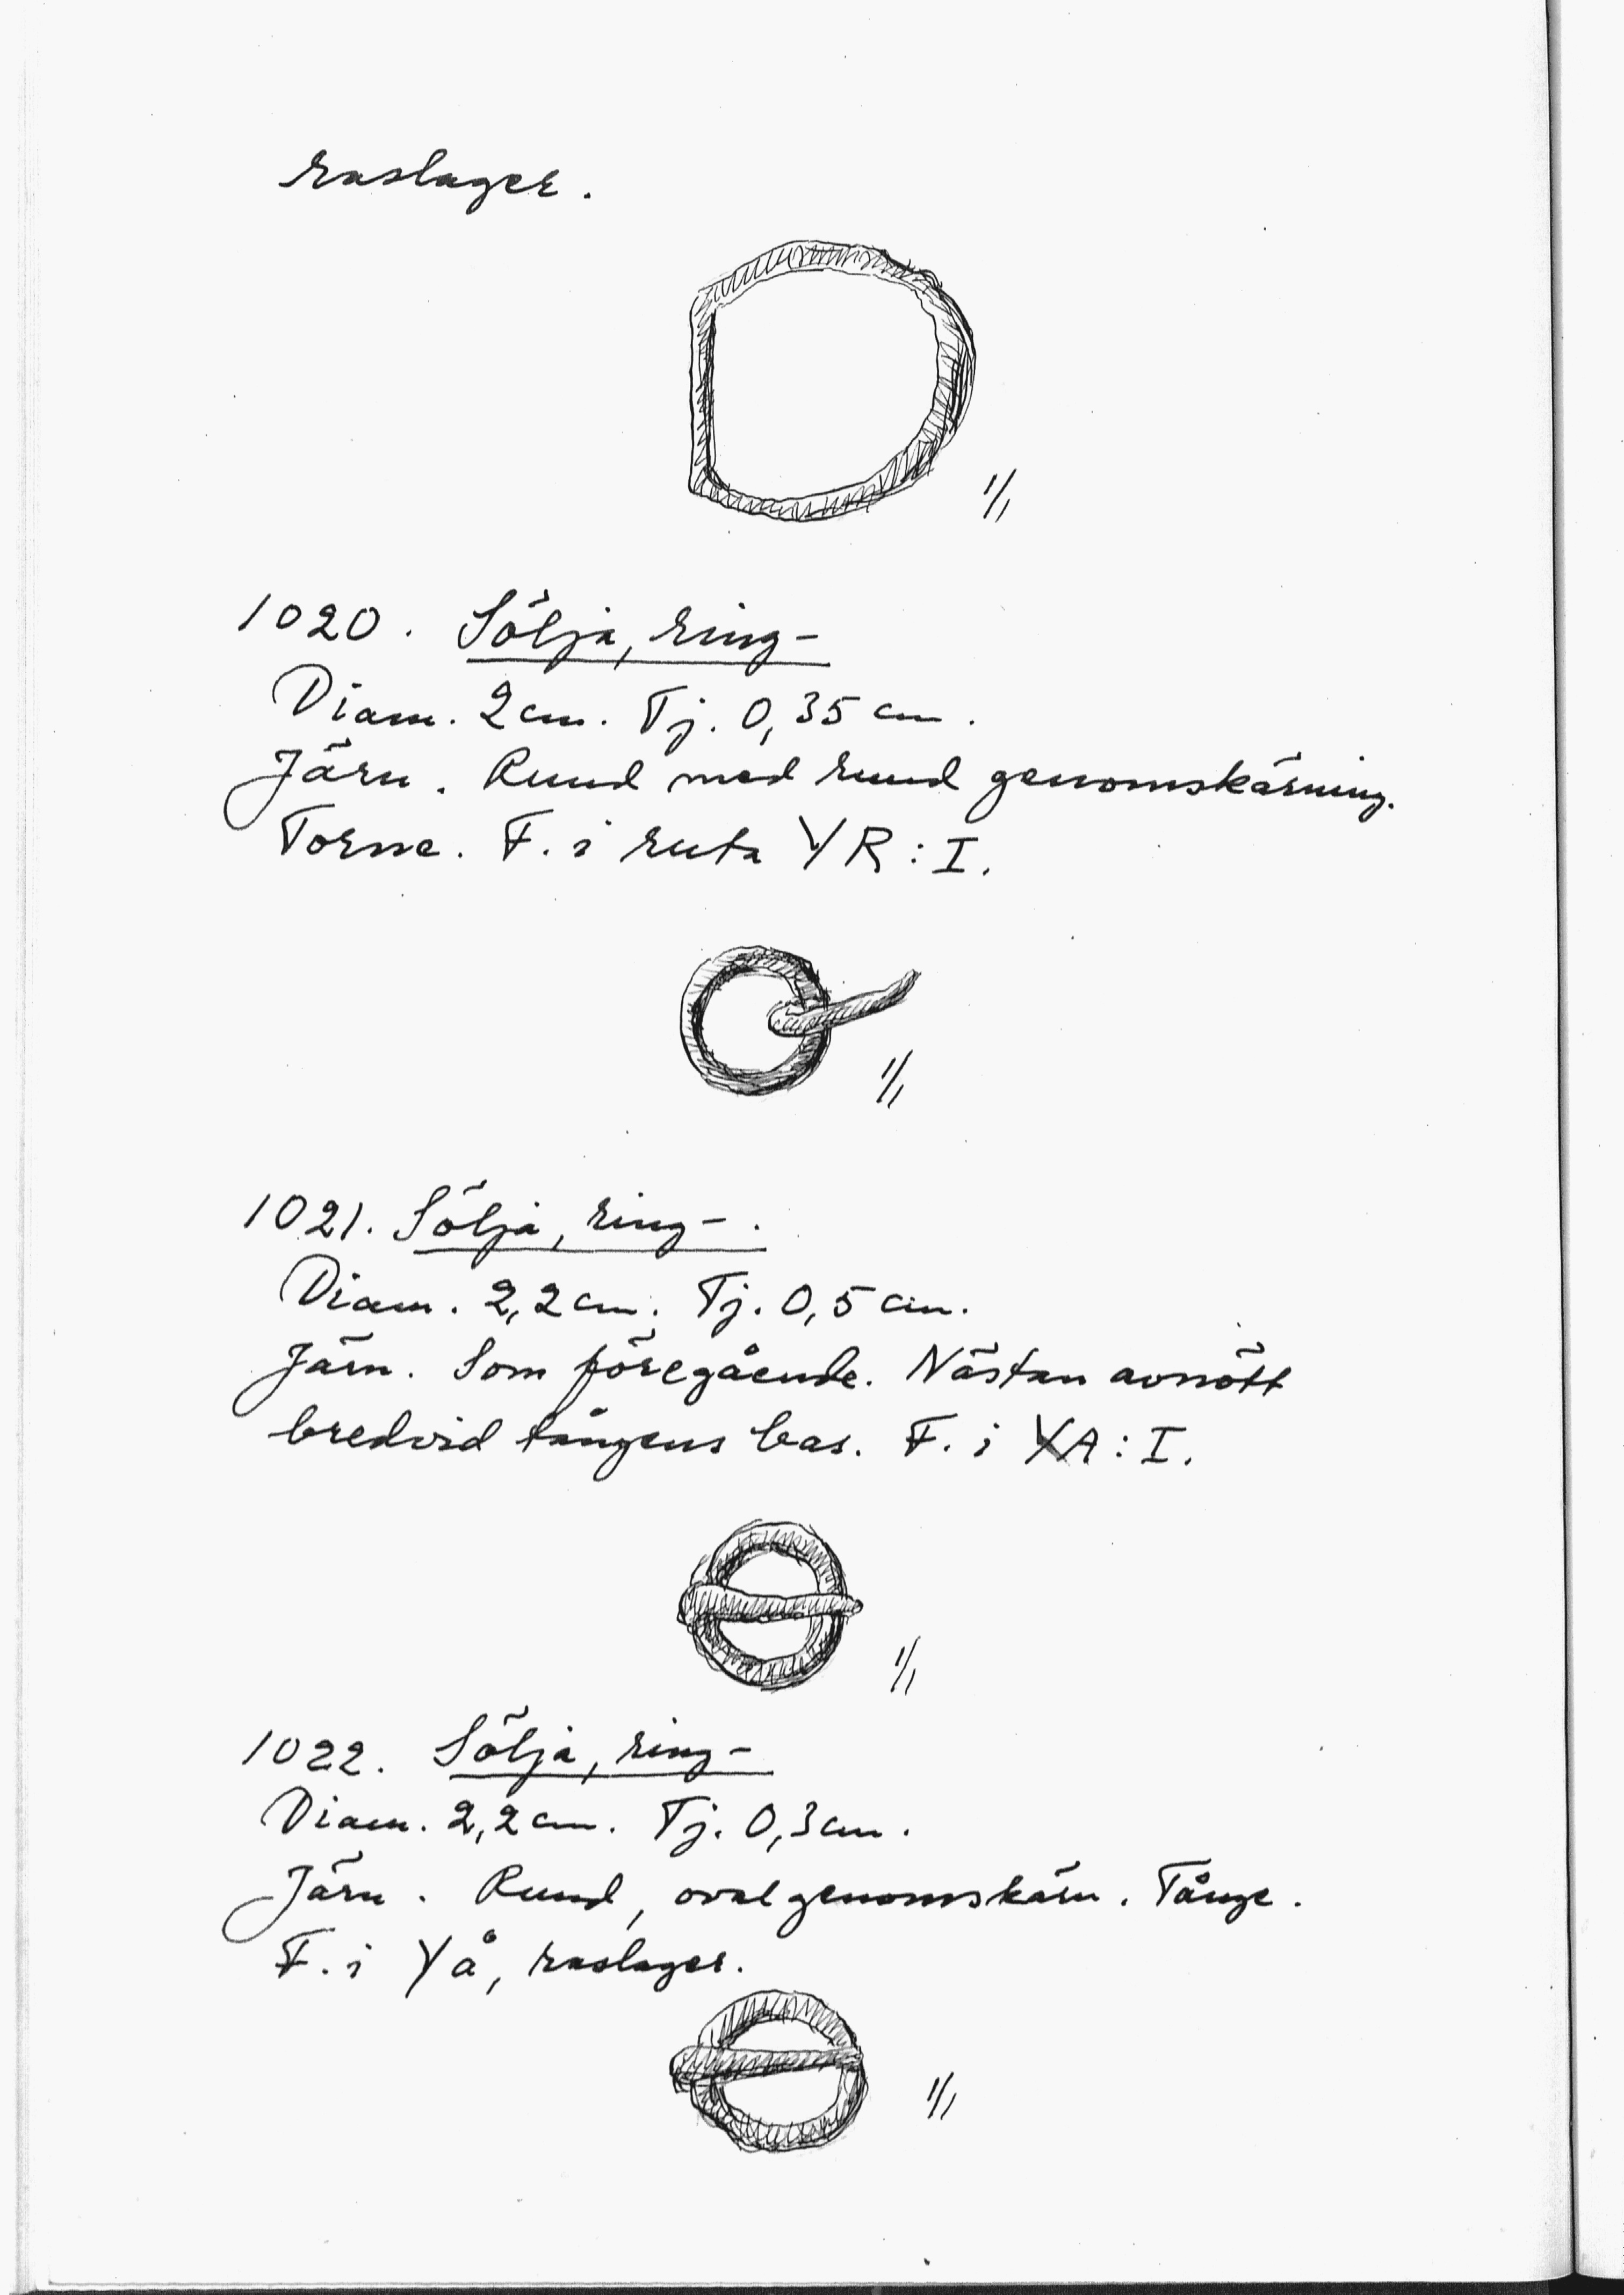 raslager.
1/1
1020. Sölja, ring-
Diam. 2 cm. Tj. 0,35 cm.
Järn. Rund med rund genomskärning.
Torne. F. i ruta YR: I.
1/1
1021. Sölja, ring-.
Diam. 2,2 cm. Tj. 0,5 cm.
Järn. Som föregående. Nästan avnött
bredvid tångens bas. F. i XA: I.
1/1
1022. Sölja, ring-
Diam. 2,2 cm. Tj. 0,3 cm.
Järn. Rund, oval genomskärn. Tånge.
F. i YÅ, raslager.
1/1